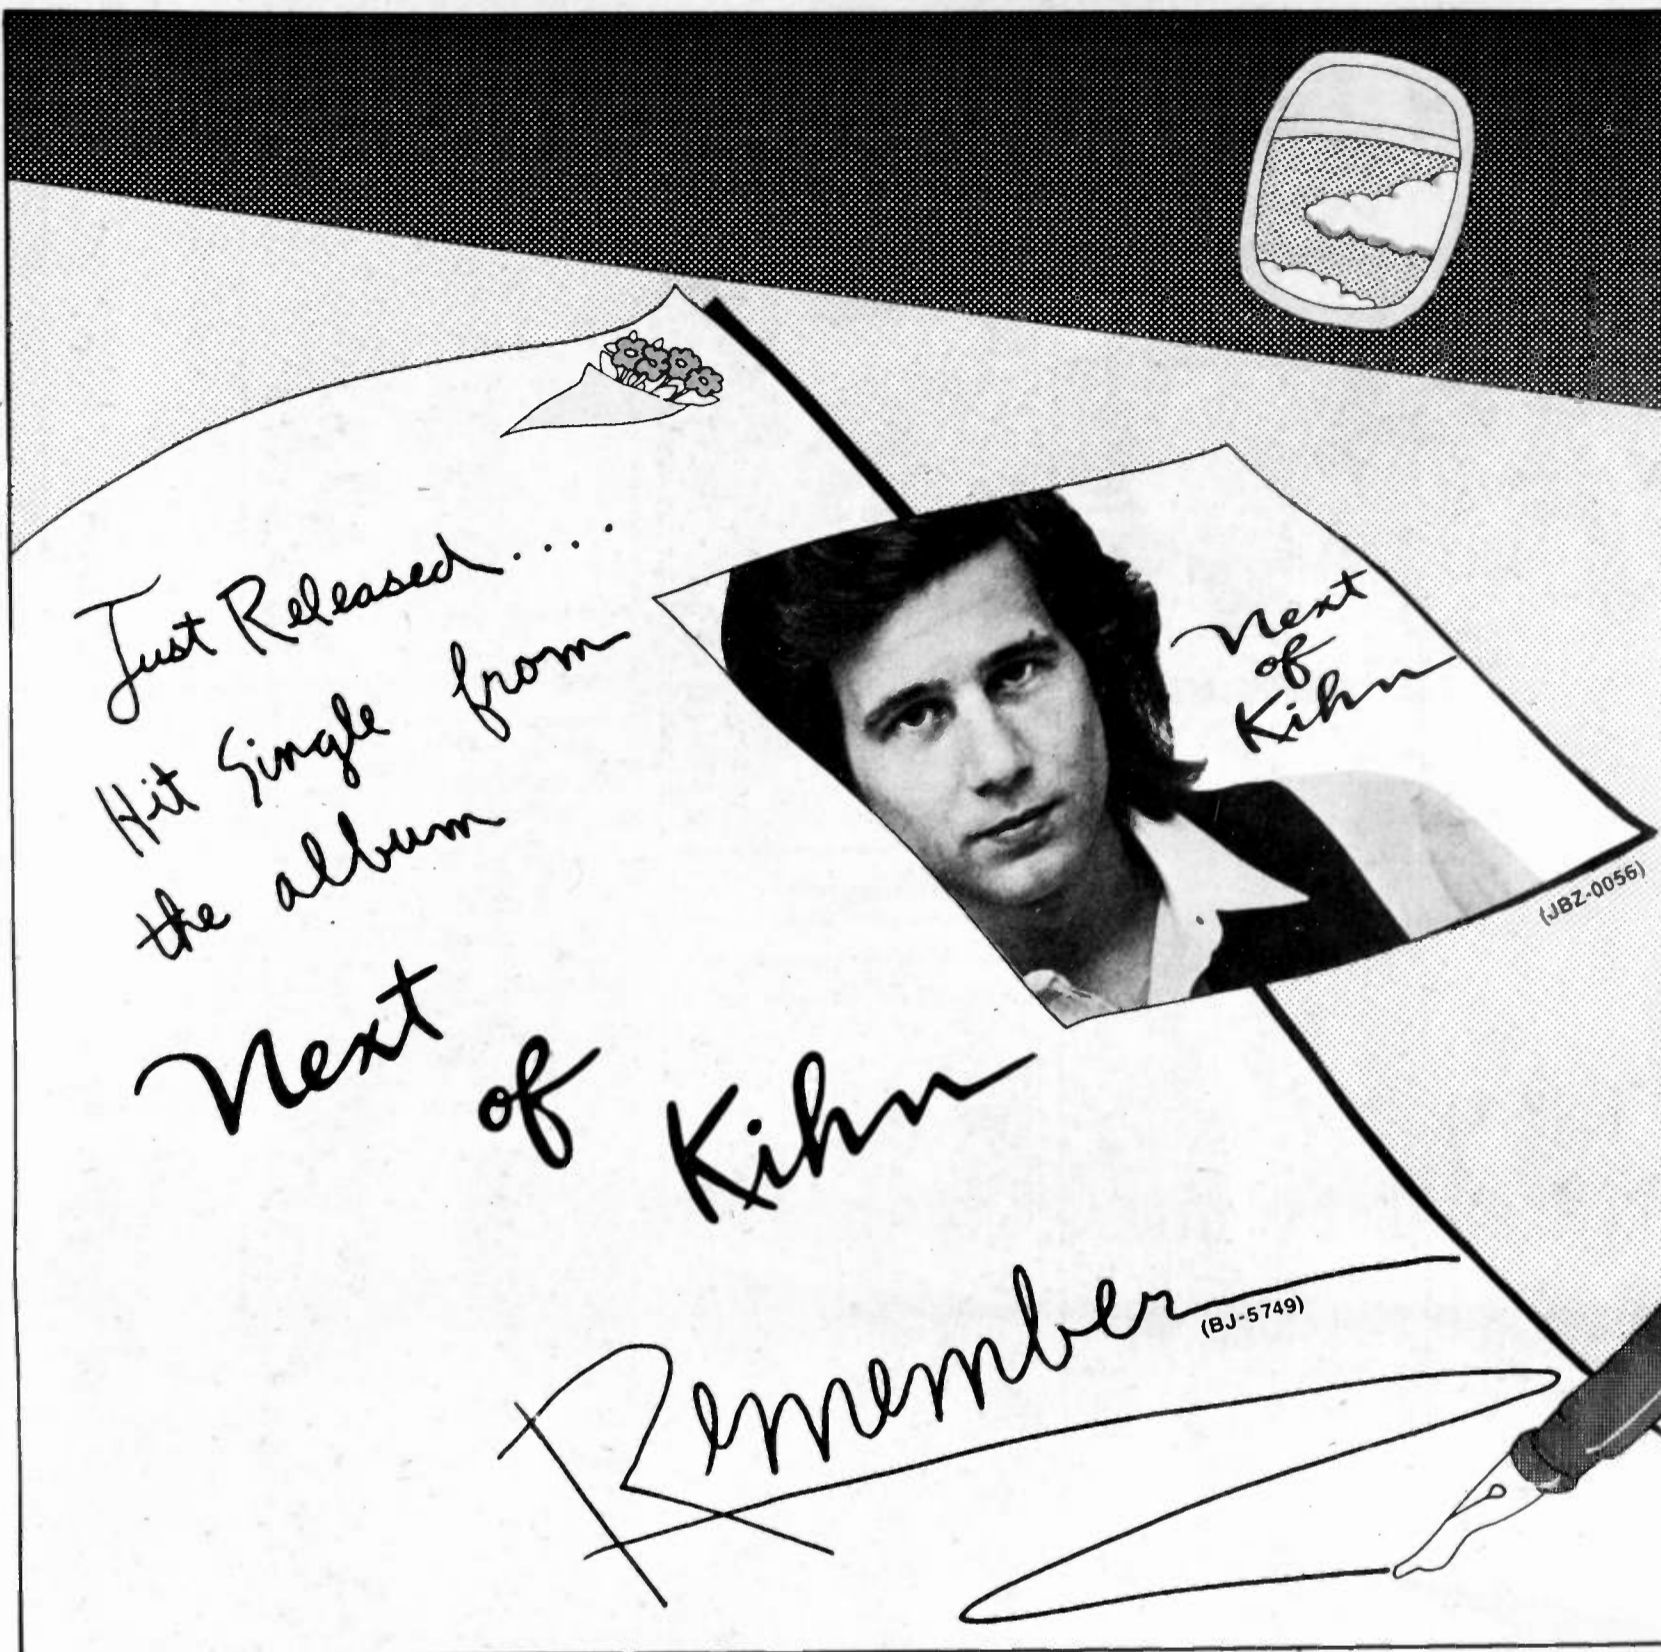 Just Released....
Hit Single from
the album
Next
of
Kihn
Next
of
Kihn
(JBZ-0056)
Remember
(BJ-5749)